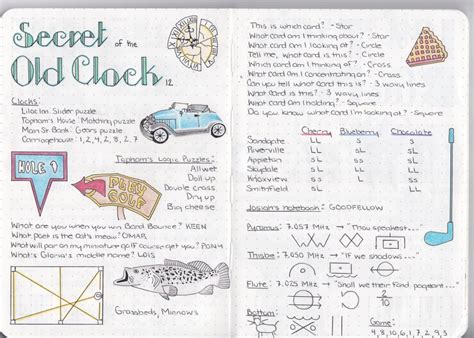 Secret
of the
Old Clock 12
Clocks:
Lilac Inn: Slider puzzle
Topham's House: Matching puzzle
Main St. Bank: Gears puzzle
Carriagehouse: 1, 2, 4, 2, 8, 7
HOLE 1
PLAY
GOLF
Topham's Logic Puzzles:
Allwet
Doll up
Double cross
Dry up
Big cheese
What are you when you win Band Bounce? KEEN
What poet is the cat's meow? OMAR
What will par on my miniature golf course get you? PONY
What's Gloria's middle name? LOIS
Grassbeds, Minnows
This is which card? - Star
What card am I thinking about? - Star
What card am I looking at? - Circle
Tell me what card this is. - Circle
Which card am I thinking of? - Cross
What card am I concentrating on? - Cross
Can you tell what card this is? - 3 wavy lines
What card is this? - 3 wavy lines
What card am I looking? - Square
Do you know what card I'm looking at? - Square
Cherry Blueberry Chocolate
Sandpite LL S S
Riverville SL LL L
Appleton SL SL L
Skydale SL LL L
Knoxview SL S LL
Smithfield SL L LL
Josiah's notebook: GOODFELLOW
Pyramus: 7.057 MHz → "Thou speakest..."
Thisbe: 7.050 MHz → "If we shadows..."
Flute: 7.025 MHz → "Shall we their fond pageant..."
2/10
Bottom:
Game:
4, 8, 10, 6, 1, 2, 3, 7, 9, 5